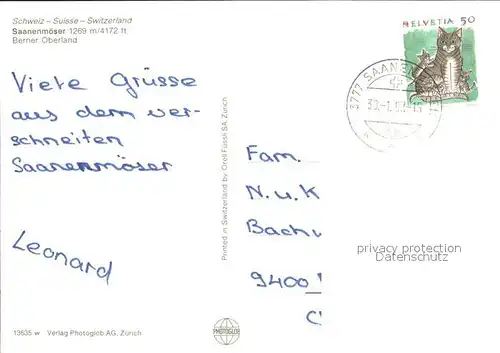 Schweiz – Suisse – Switzerland
Saanenmöser 1269 m/4172 ft
Berner Oberland
HELVETIA 50
3777 SAANE
30.-1.
Viele Grüsse
aus dem ver-
schneiten
Saanenmöser
Leonard
Printed in Switzerland by Orell Füssli SA Zürich
Fam.
N. u. K
Bach
9400
privacy protection
Datenschutz
13635 w Verlag Photoglob AG, Zürich
PHOTOGLOB